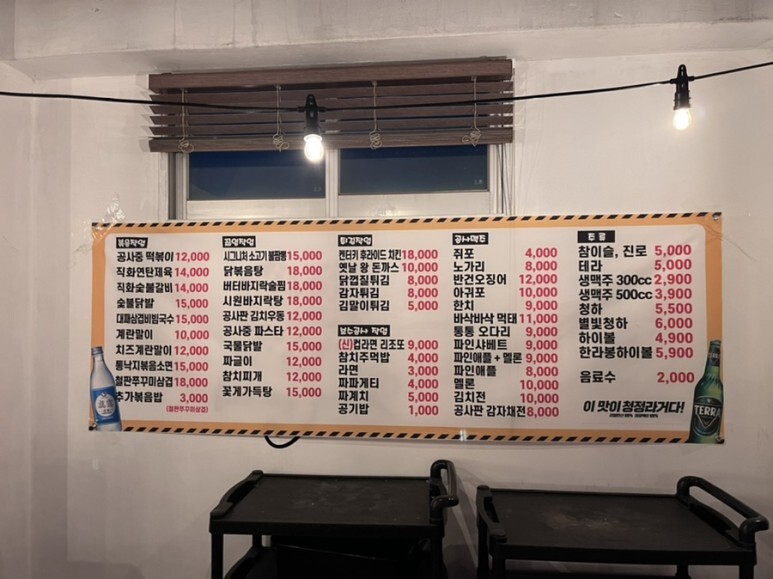 볶음작업
공사중 떡볶이 12,000
직화연탄제육 14,000
직화숯불갈비 14,000
숯불닭발 15,000
대패삼겹비빔국수 15,000
계란말이 10,000
치즈계란말이 12,000
통낙지볶음소면 15,000
철판쭈꾸미삼겹 18,000
추가볶음밥 3,000
(철판쭈꾸미삼겹)
끓임작업
시그니처 소고기 불짬뽕 15,000
닭볶음탕 18,000
버터바지락술찜 18,000
시원바지락탕 18,000
공사판 김치우동 12,000
공사중 파스타 12,000
국물닭발 15,000
짜글이 12,000
참치찌개 12,000
꽃게가득탕 15,000
튀김작업
켄터키 후라이드 치킨 18,000
옛날 왕 돈까스 10,000
닭껍질튀김 8,000
감자튀김 8,000
김말이튀김 5,000
보수공사 작업
(신)컵라면 리조또 9,000
참치주먹밥 4,000
라면 3,000
짜파게티 4,000
짜계치 5,000
공기밥 1,000
공사먹트
쥐포 4,000
노가리 8,000
반건오징어 12,000
아귀포 10,000
한치 9,000
바삭바삭 먹태 11,000
통통 오다리 9,000
파인샤베트 9,000
파인애플 + 멜론 9,000
파인애플 8,000
멜론 10,000
김치전 10,000
공사판 감자채전 8,000
참이슬, 진로 5,000
테라 5,000
생맥주 300cc 2,900
생맥주 500cc 3,900
청하 5,500
별빛청하 6,000
하이볼 4,900
한라봉하이볼 5,900
음료수 2,000
이 맛이 청정라거다!
TERRA